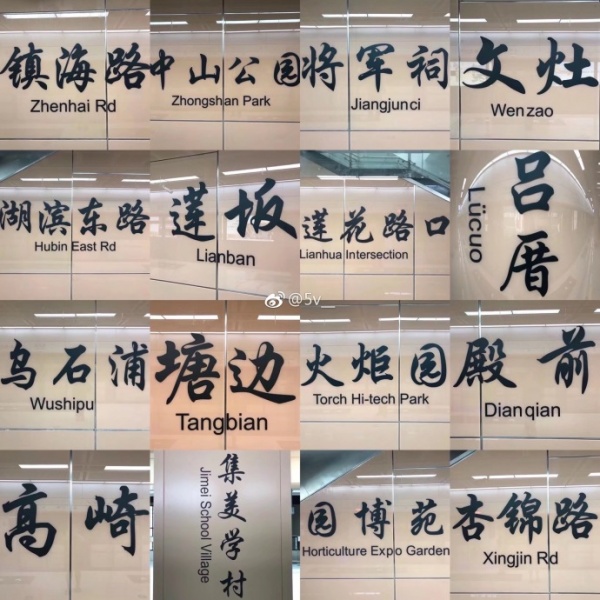 镇海路
Zhenhai Rd
中山公园
Zhongshan Park
将军祠
Jiangjunci
文灶
Wenzao
湖滨东路
Hubin East Rd
莲坂
Lianban
莲花路口
Lianhua Intersection
吕厝
Lücuo
@5v__
乌石浦
Wushipu
塘边
Tangbian
火炬园
Torch Hi-tech Park
殿前
Dianqian
高崎
集美学村
Jimei School Village
园博苑
Horticulture Expo Garden
杏锦路
Xingjin Rd